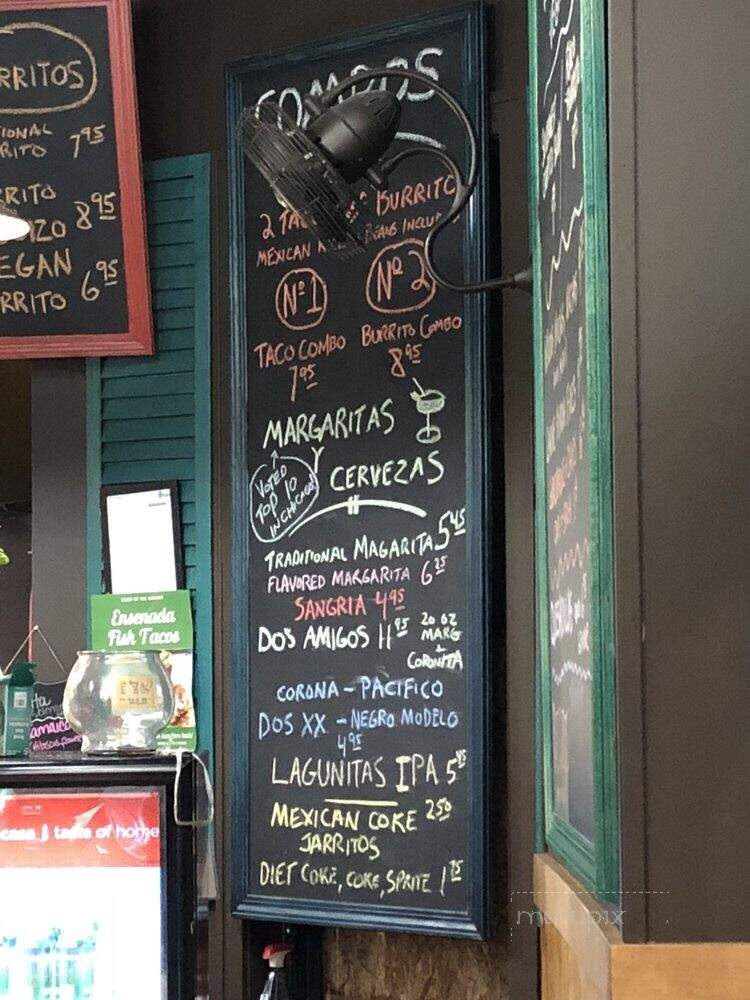 RRITOS
IONAL
RITO 7.95
RRITO
IZO 8.95
EGAN
RRITO 6.95
COMBOS
2 TAC BURRITO
MEXICAN BEANS INCLU
Nº1
Nº2
TACO COMBO BURRITO COMBO
7.95 8.95
MARGARITAS
Y
CERVEZAS
VOTED
TOP 10
IN CHICAGO!
TRADITIONAL MAGARITA 5.45
FLAVORED MARGARITA 6.25
SANGRIA 4.95
DOS AMIGOS 11.95 20 OZ
MARG
+
CORONITA
CORONA - PACIFICO
DOS XX - NEGRO MODELO
4.95
LAGUNITAS IPA 5.45
MEXICAN COKE 2.50
JARRITOS
DIET COKE, COKE, SPRITE 1.75
Ensenada
Fish Tacos
amaica
casa | taste of home